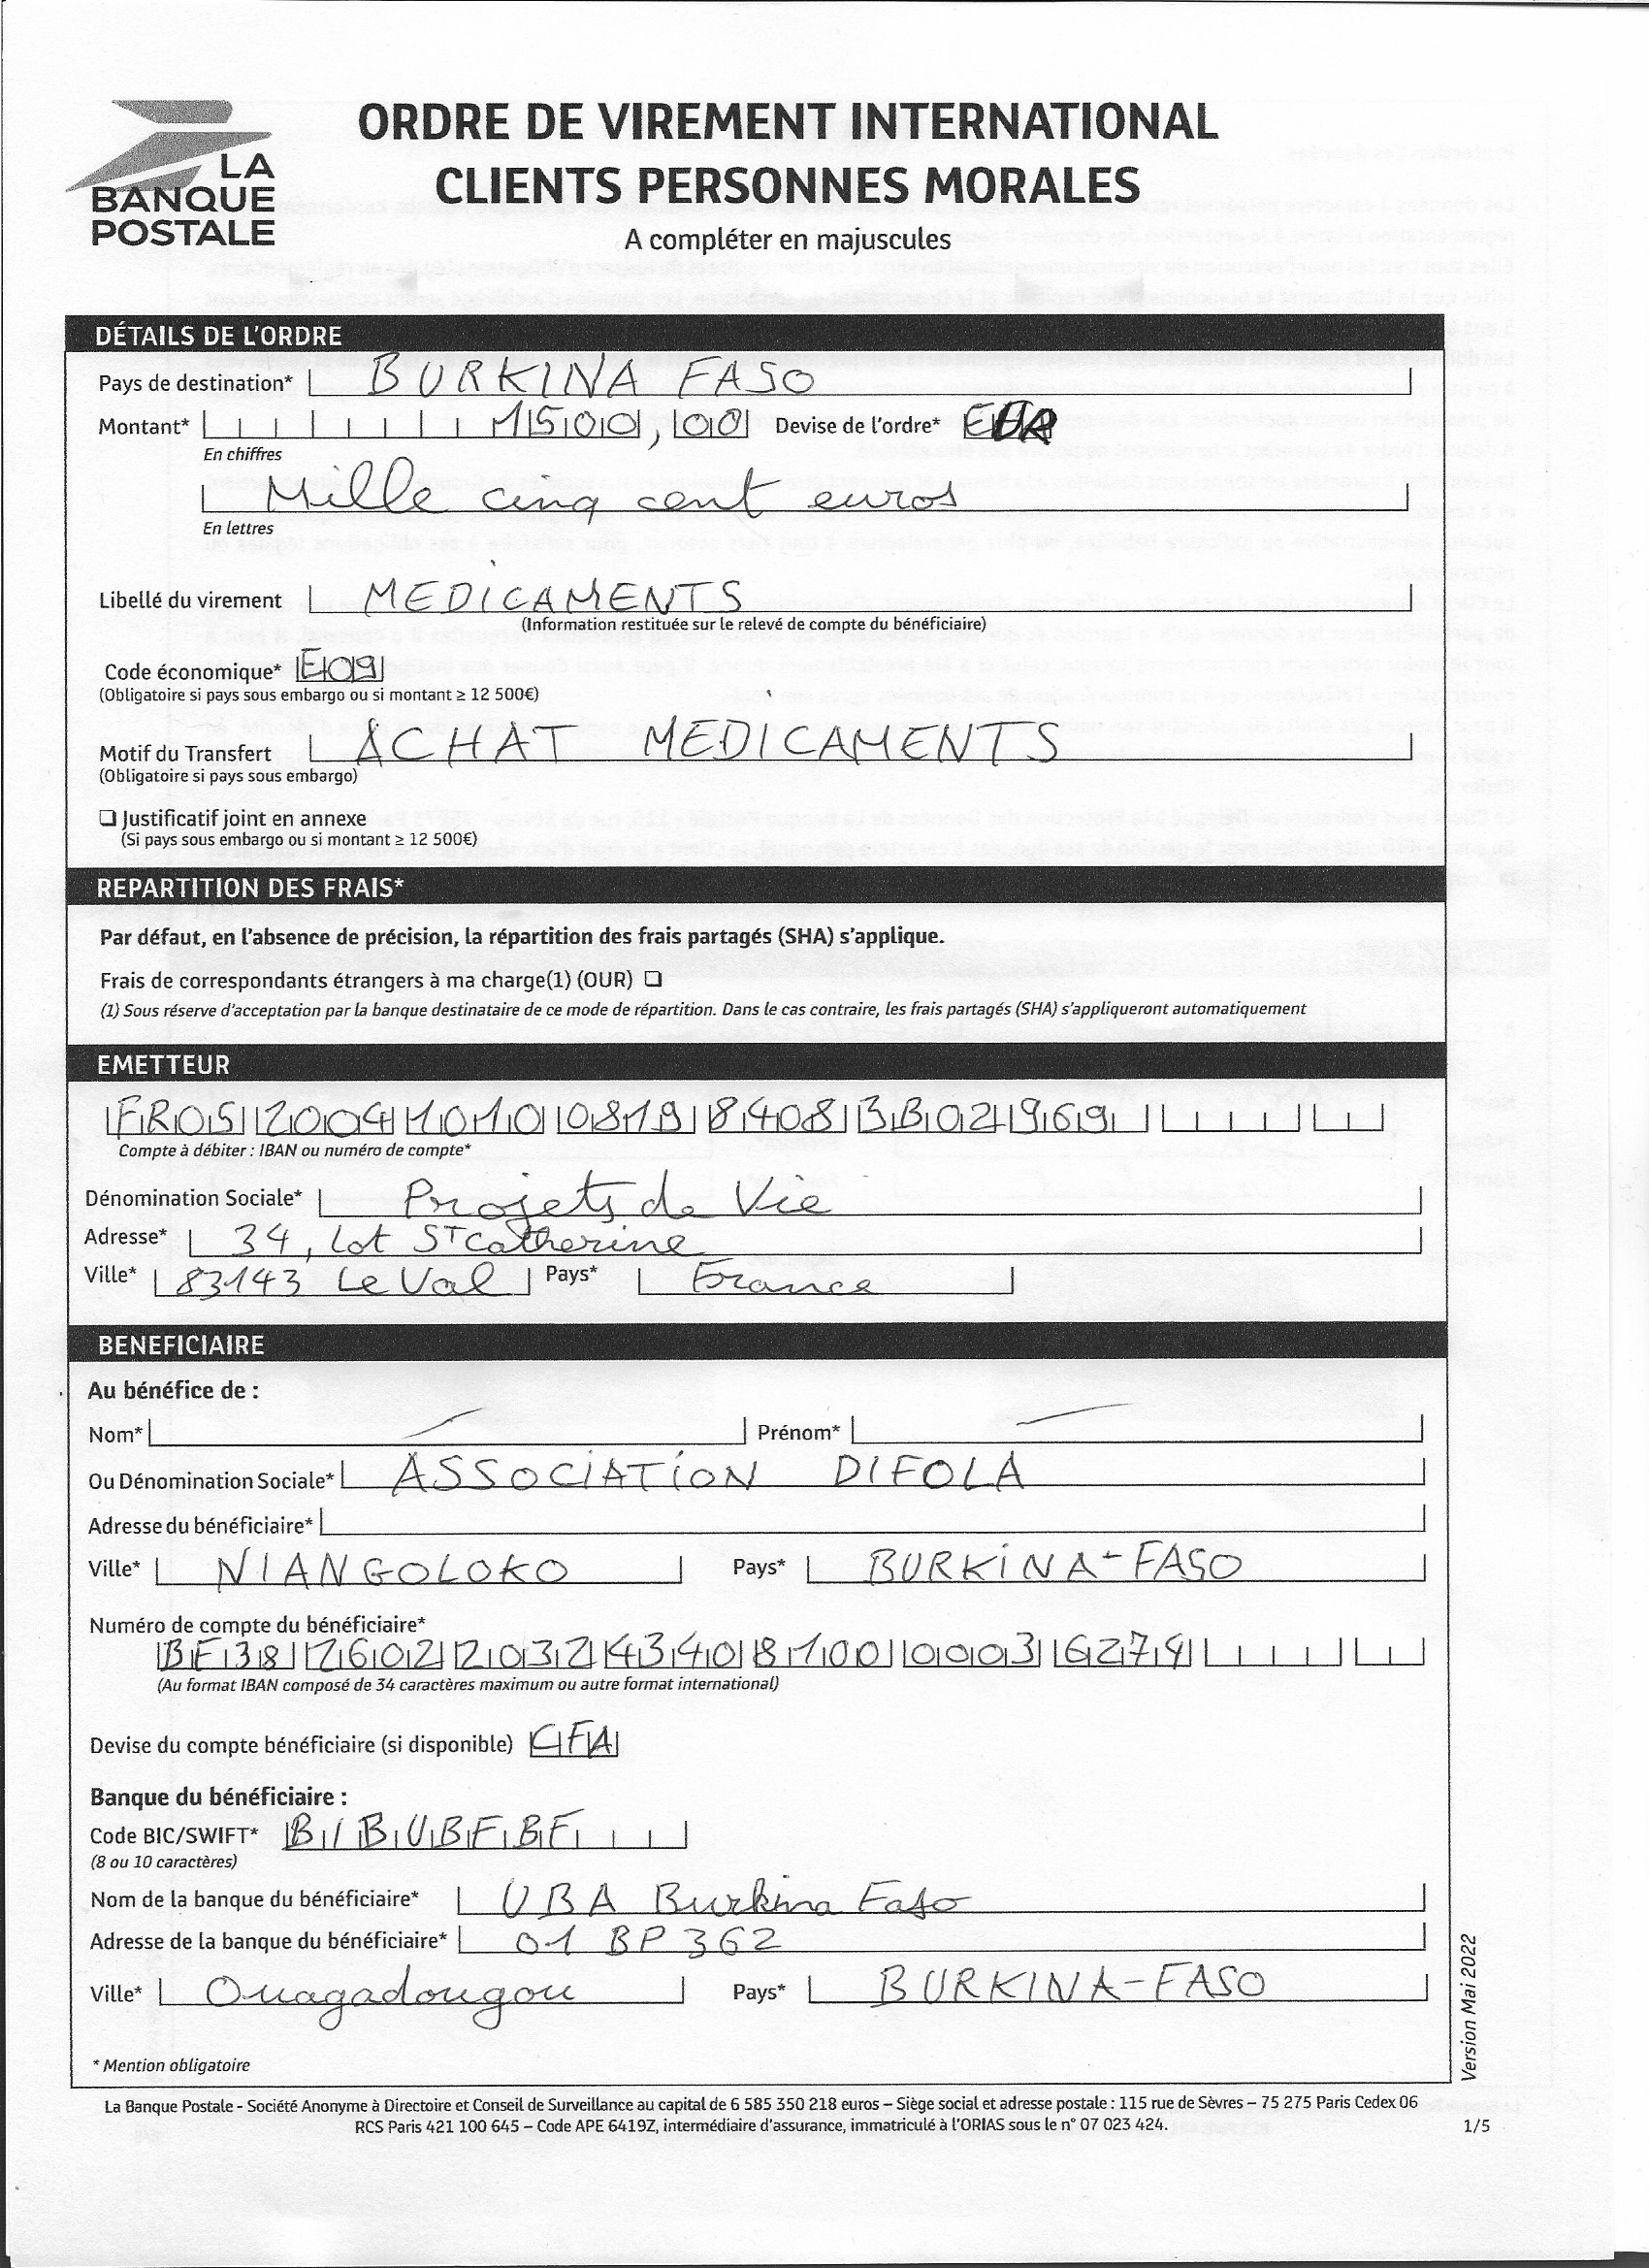 LA
BANQUE
POSTALE
ORDRE DE VIREMENT INTERNATIONAL
CLIENTS PERSONNES MORALES
A compléter en majuscules
DÉTAILS DE L'ORDRE
Pays de destination* BURKINA FASO
Montant* 1500,00 Devise de l'ordre* EUR
En chiffres
Mille cinq cent euros
En lettres
Libellé du virement MEDICAMENTS
(Information restituée sur le relevé de compte du bénéficiaire)
Code économique* E09
(Obligatoire si pays sous embargo ou si montant ≥ 12 500€)
Motif du Transfert ACHAT MEDICAMENTS
(Obligatoire si pays sous embargo)
❑ Justificatif joint en annexe
(Si pays sous embargo ou si montant ≥ 12 500€)
REPARTITION DES FRAIS*
Par défaut, en l'absence de précision, la répartition des frais partagés (SHA) s'applique.
Frais de correspondants étrangers à ma charge(1) (OUR) ❑
(1) Sous réserve d'acceptation par la banque destinataire de ce mode de répartition. Dans le cas contraire, les frais partagés (SHA) s'appliqueront automatiquement
EMETTEUR
FR05 2004 1010 0819 8408 3B02 969
Compte à débiter : IBAN ou numéro de compte*
Dénomination Sociale* Projets de Vie
Adresse* 34, Lot St Catherine
Ville* 83143 Le Val Pays* France
BENEFICIAIRE
Au bénéfice de :
Nom* Prénom*
Ou Dénomination Sociale* ASSOCIATION DIFOLA
Adresse du bénéficiaire*
Ville* NIANGOLOKO Pays* BURKINA-FASO
Numéro de compte du bénéficiaire*
BF38 2602 2032 4340 8100 0003 6274
(Au format IBAN composé de 34 caractères maximum ou autre format international)
Devise du compte bénéficiaire (si disponible) CFA
Banque du bénéficiaire :
Code BIC/SWIFT* BIBUBFBF
(8 ou 10 caractères)
Nom de la banque du bénéficiaire* UBA Burkina Faso
Adresse de la banque du bénéficiaire* 01 BP 362
Ville* Ouagadougou Pays* BURKINA-FASO
* Mention obligatoire
Version Mai 2022
La Banque Postale - Société Anonyme à Directoire et Conseil de Surveillance au capital de 6 585 350 218 euros – Siège social et adresse postale : 115 rue de Sèvres – 75 275 Paris Cedex 06
RCS Paris 421 100 645 – Code APE 6419Z, intermédiaire d'assurance, immatriculé à l'ORIAS sous le n° 07 023 424.
1/5